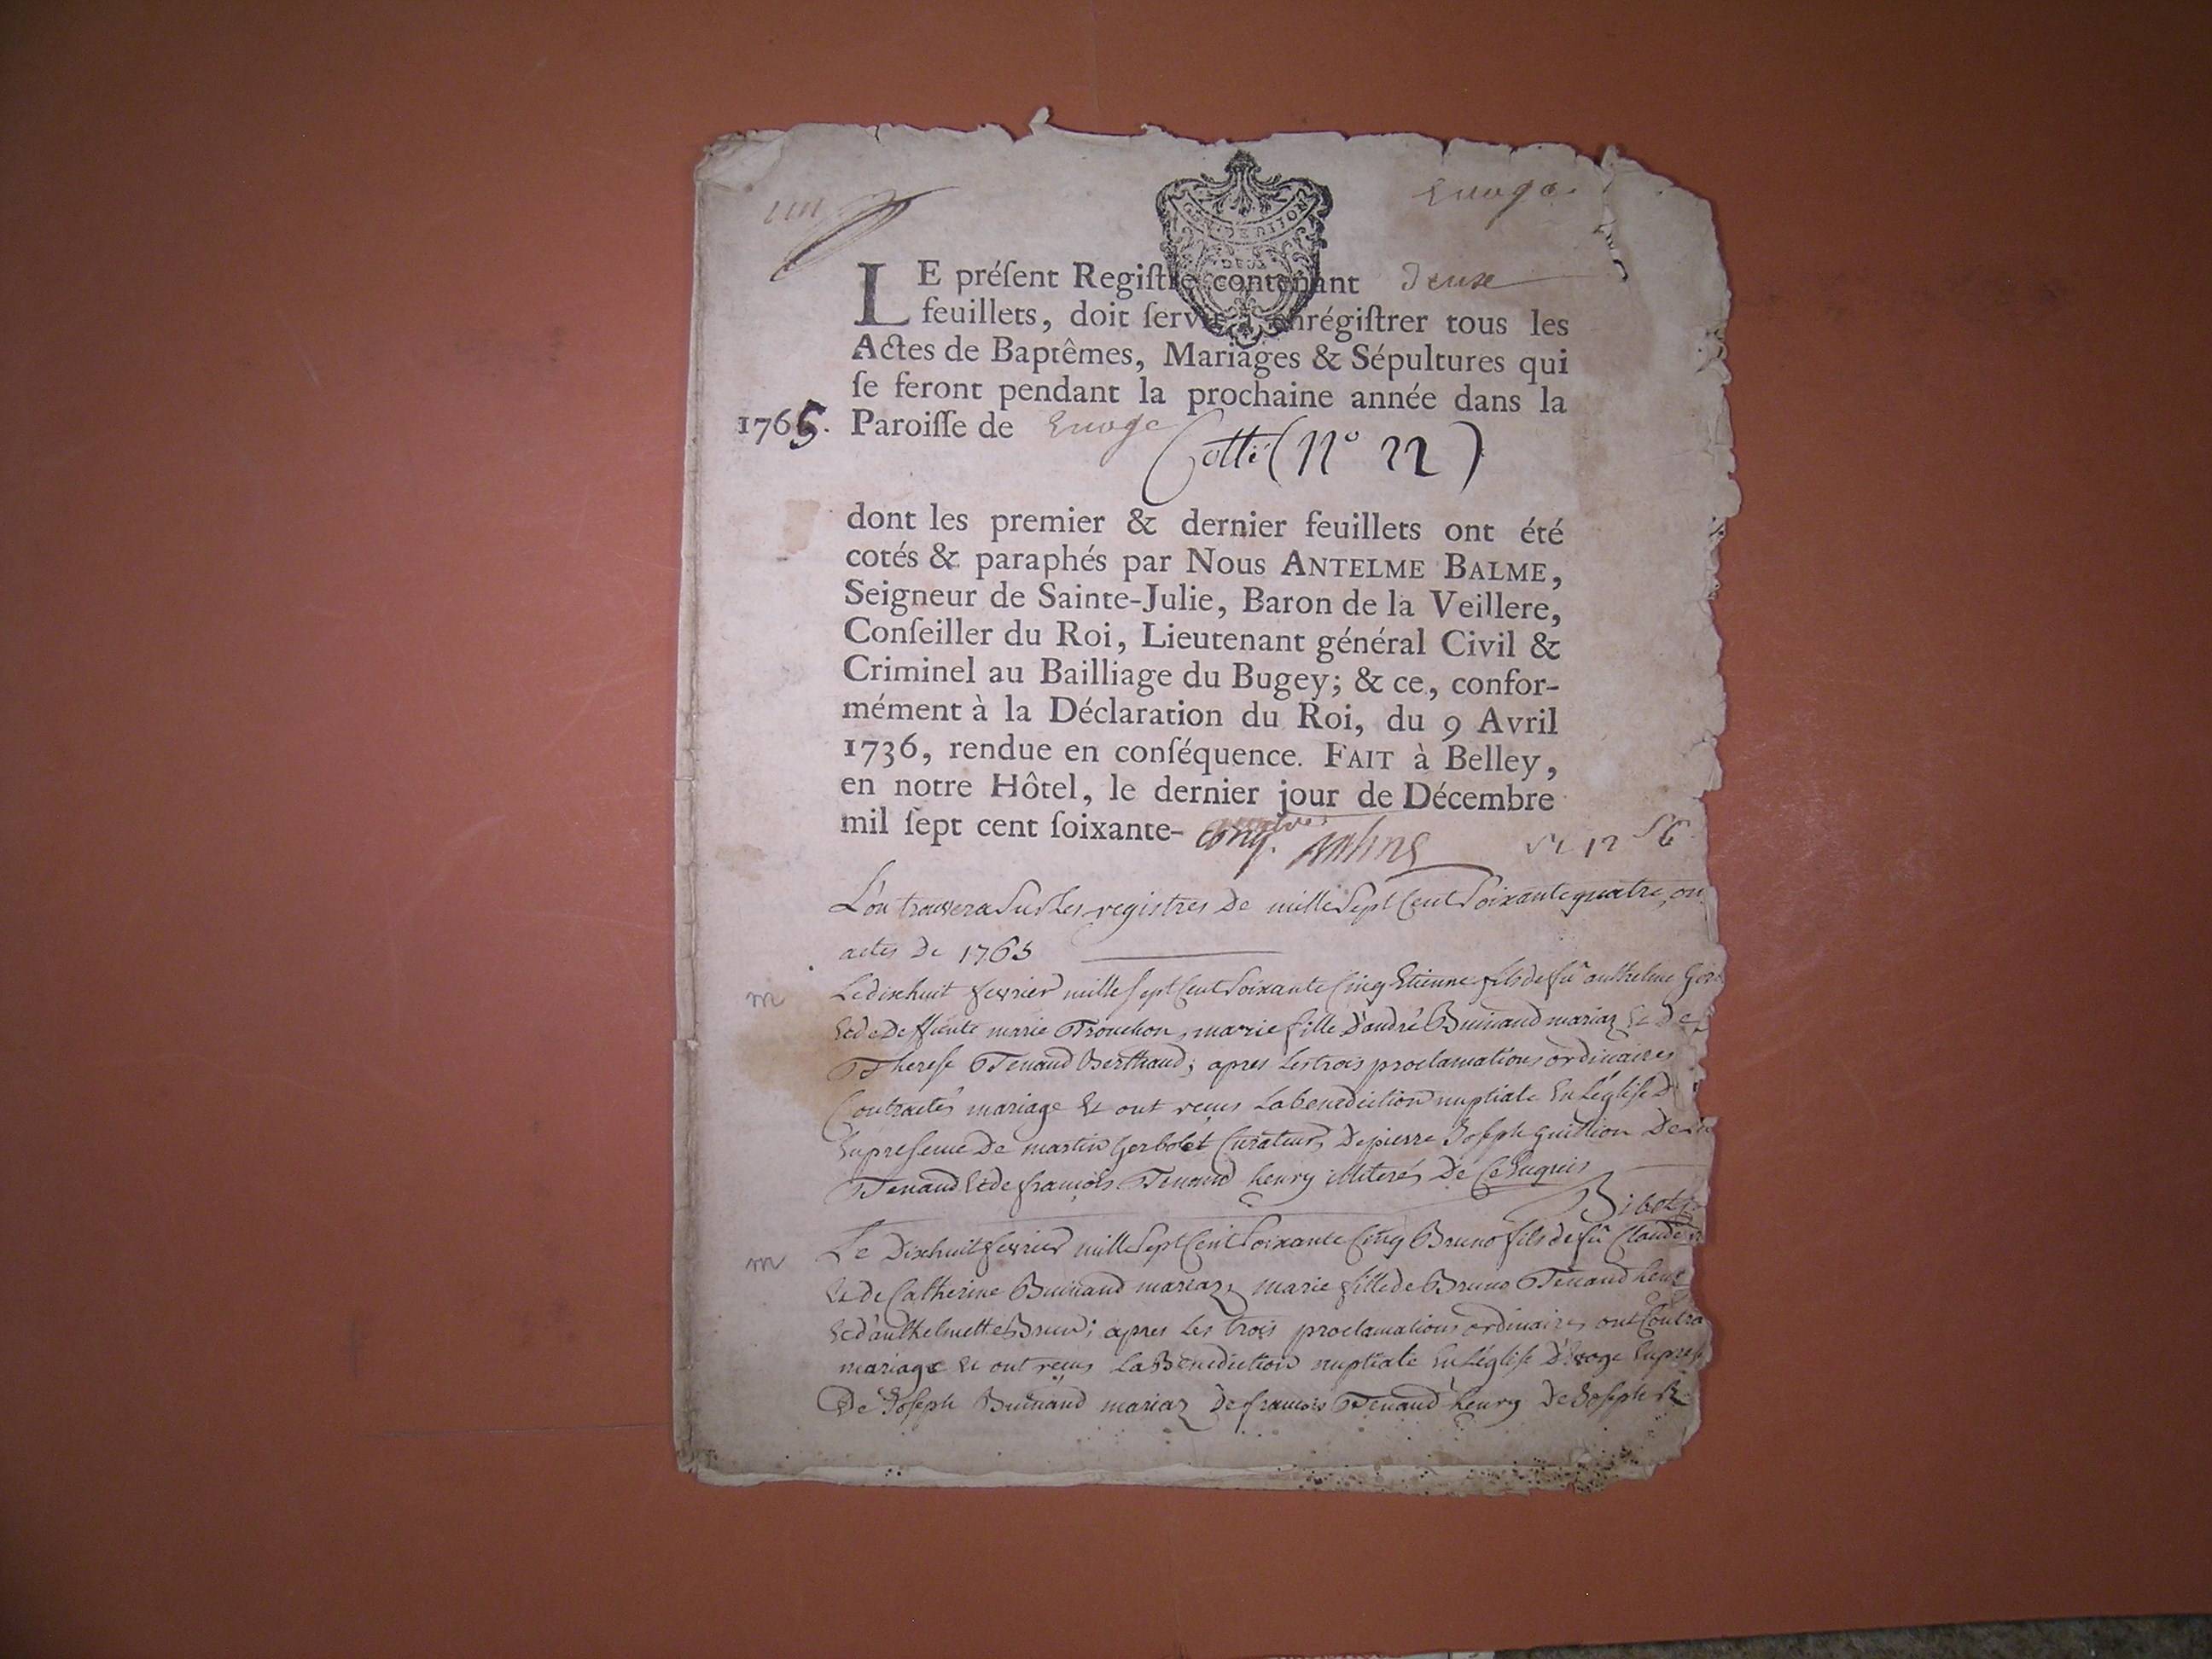 un
Evoge
GEN
DEUX
LE préſent Regiſtre contenant deux
feuillets, doit ſervir à enrégiſtrer tous les
Actes de Baptêmes, Mariages & Sépultures qui
ſe feront pendant la prochaine année dans la
1765. Paroiſſe de Evoge
Cotté (N° 22)
dont les premier & dernier feuillets ont été
cotés & paraphés par Nous ANTELME BALME,
Seigneur de Sainte-Julie, Baron de la Veillere,
Conſeiller du Roi, Lieutenant général Civil &
Criminel au Bailliage du Bugey; & ce, confor-
mément à la Déclaration du Roi, du 9 Avril
1736, rendue en conſéquence. FAIT à Belley,
en notre Hôtel, le dernier jour de Décembre
mil ſept cent ſoixante- quatre Balme
L'on trouvera Sur Les registres De mille Sept Cent Soixante quatre, on
actes De 1765
m Le dixhuit fevrier mille Sept Cent Soixante Cinq Etienne fils de fû anthelme Gerb
Et de Deffunte marie Trouchon, marie fille D'andré Buinand mariaz Et De
Therese Tenand Berthaud; apres Les trois proclamations ordinaires
Contractés mariage Et ont reçus La benediction nuptiale En L'église D
En presence De martin Gerbolet Curateur, De pierre Joseph Guillion De
Tenand Et de françois Tenand henry illiterés De Ce Enquis
m Le Dixhuit fevrier mille Sept Cent Soixante Cinq Bruno fils de fû Claude
Et de Catherine Buinand mariaz, marie fille de Bruno Tenand henr
Et d'anthelmette Brun; apres Les trois proclamations ordinaires ont Contra
mariage Et ont reçus La Benediction nuptiale En L'église D'Evoge En pres
De Joseph Buinand mariaz De françois Tenand henry De Joseph